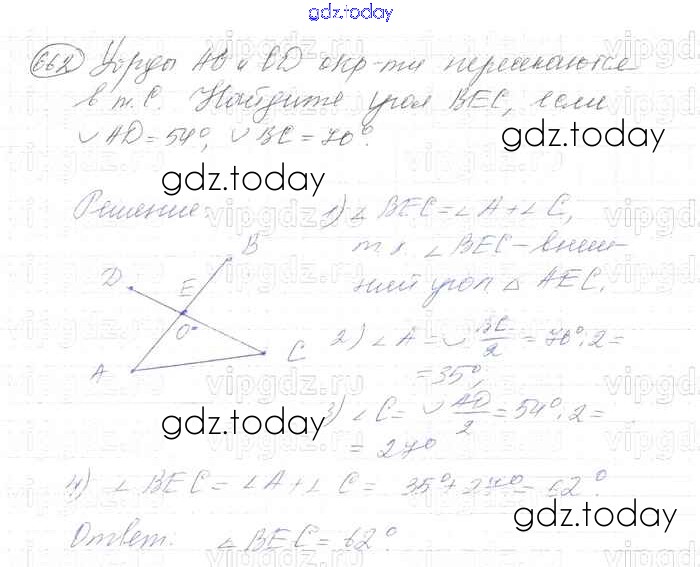 gdz.today
662 Хорды АВ и CD окр-ти пересекаются
в т. С. Найдите угол ВЕС, если
◡ AD = 54°, ◡ BC = 70°.
gdz.today
gdz.today
Решение:
1) ∠ BEC = ∠ A + ∠ C,
т.к. ∠ BEC – внеш-
ний угол △ AEC.
B
D
E
O
A
C
2) ∠ A = ◡ BC/2 = 70° : 2 =
= 35°,
3) ∠ C = ◡ AD/2 = 54° : 2 =
= 27°
gdz.today
4) ∠ BEC = ∠ A + ∠ C = 35° + 27° = 62°.
gdz.today
Ответ: ∠ BEC = 62°.